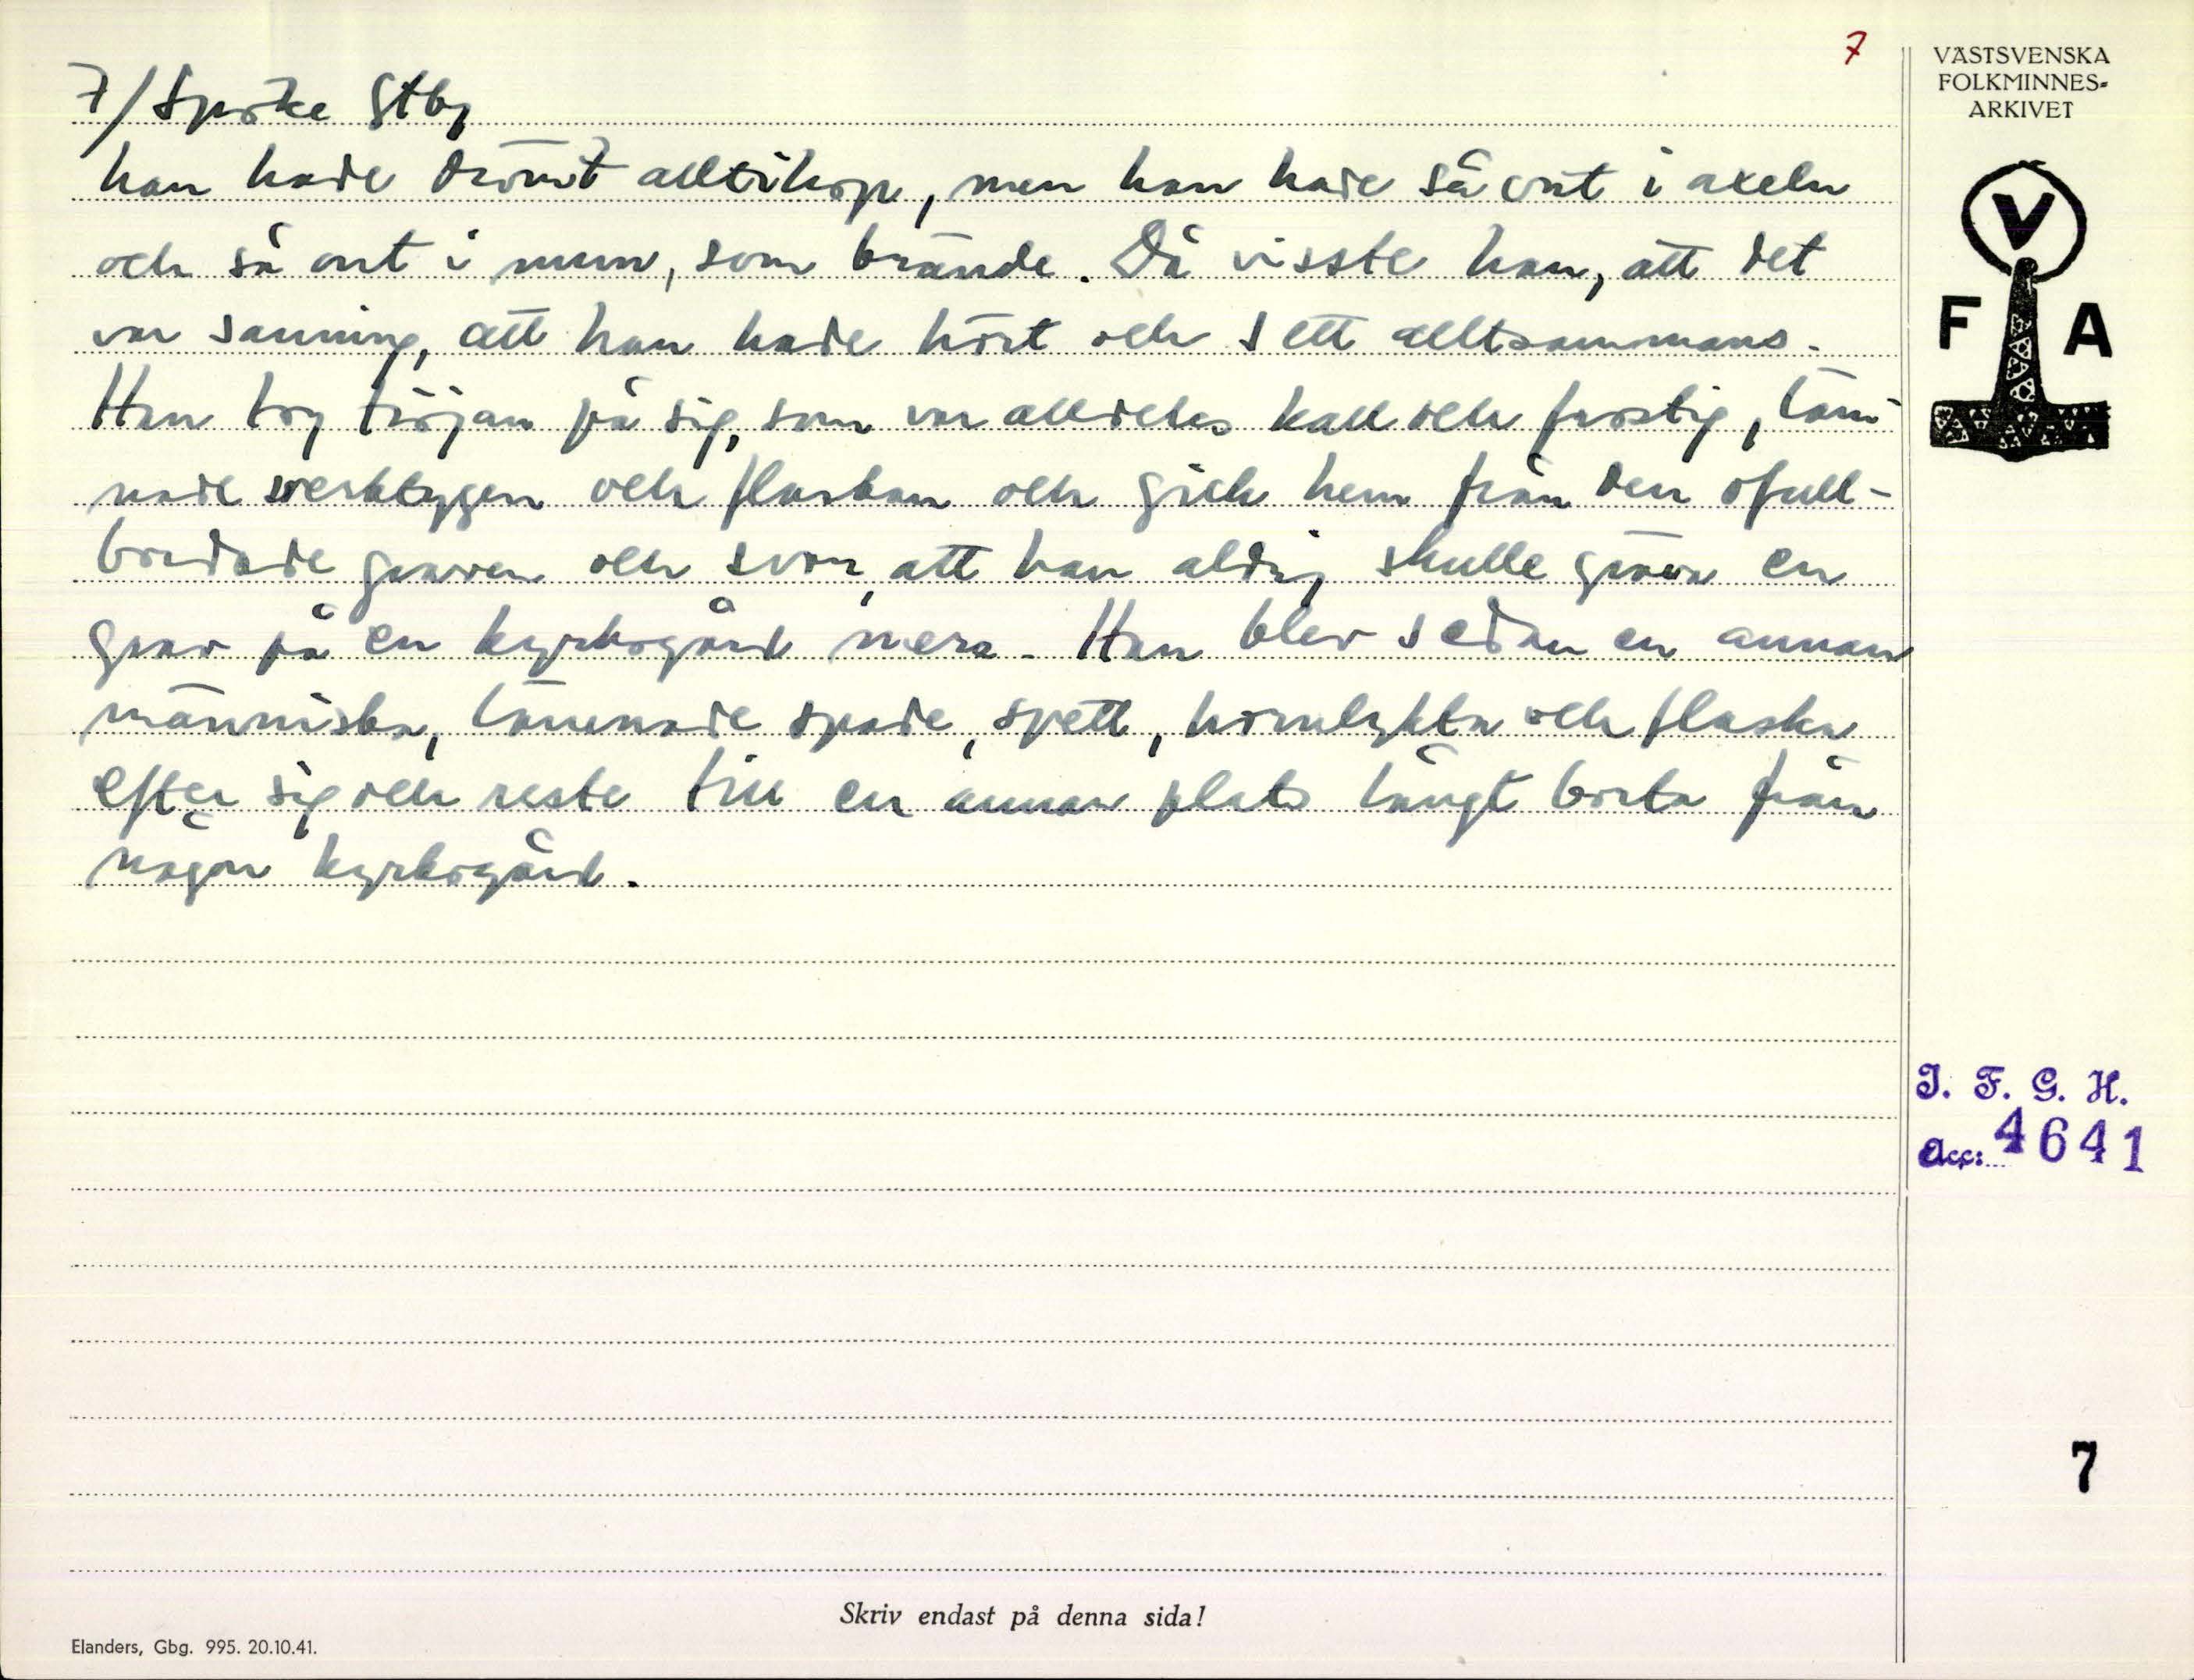 7
7/ Spöke Stby
han hade drömt alltihop, men han hade så ont i axeln
och så ont i mun, som brände. Då visste han, att det
var sanning, att han hade hört och sett alltsammans.
Han tog tröjan på sig, som var alldeles kall och frostig, läm-
nade verktygen och flaskan och gick hem från den ofull-
bordade graven och svor, att han aldrig skulle gräva en
grav på en kyrkogård mera. Han blev sedan en annan
människa, lämnade spade, spett, hornlykta och flaska
efter sig och reste till en annan plats långt borta från
någon kyrkogård.
VÄSTSVENSKA
FOLKMINNES-
ARKIVET
V
F A
I. F. G. H.
Acc: 4641
7
Skriv endast på denna sida!
Elanders, Gbg. 995. 20.10.41.